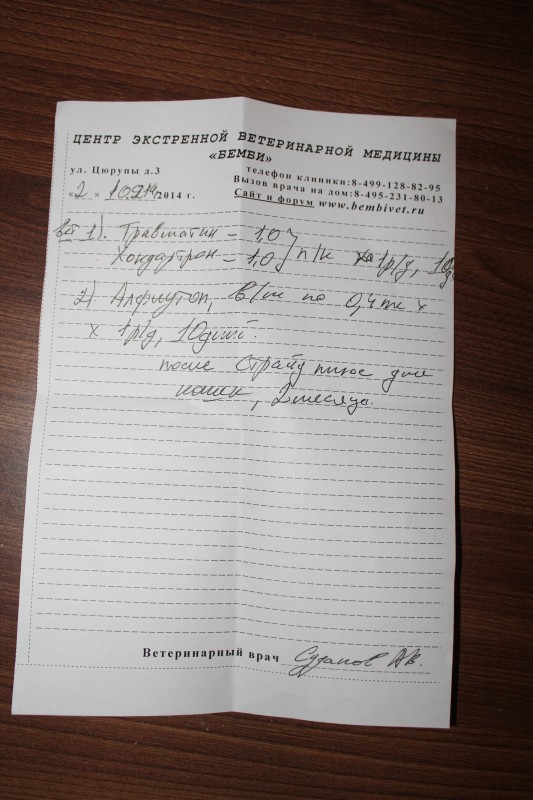 ЦЕНТР ЭКСТРЕННОЙ ВЕТЕРИНАРНОЙ МЕДИЦИНЫ
«БЕМБИ»
ул. Цюрупы д.3
телефон клиники:8-499-128-82-95
Вызов врача на дом:8-495-231-80-13
«2» 10 2014 г.
Сайт и форум www.bembivet.ru
вет 1). Травматин – 1,0
Хондартрон – 1,0 } п/к 1р/д, 10
2) Алфлутоп, в/м по 0,4 мл х
х 1р/д, 10дней.
после Страйд плюс для
кошек, 2 месяца.
Ветеринарный врач